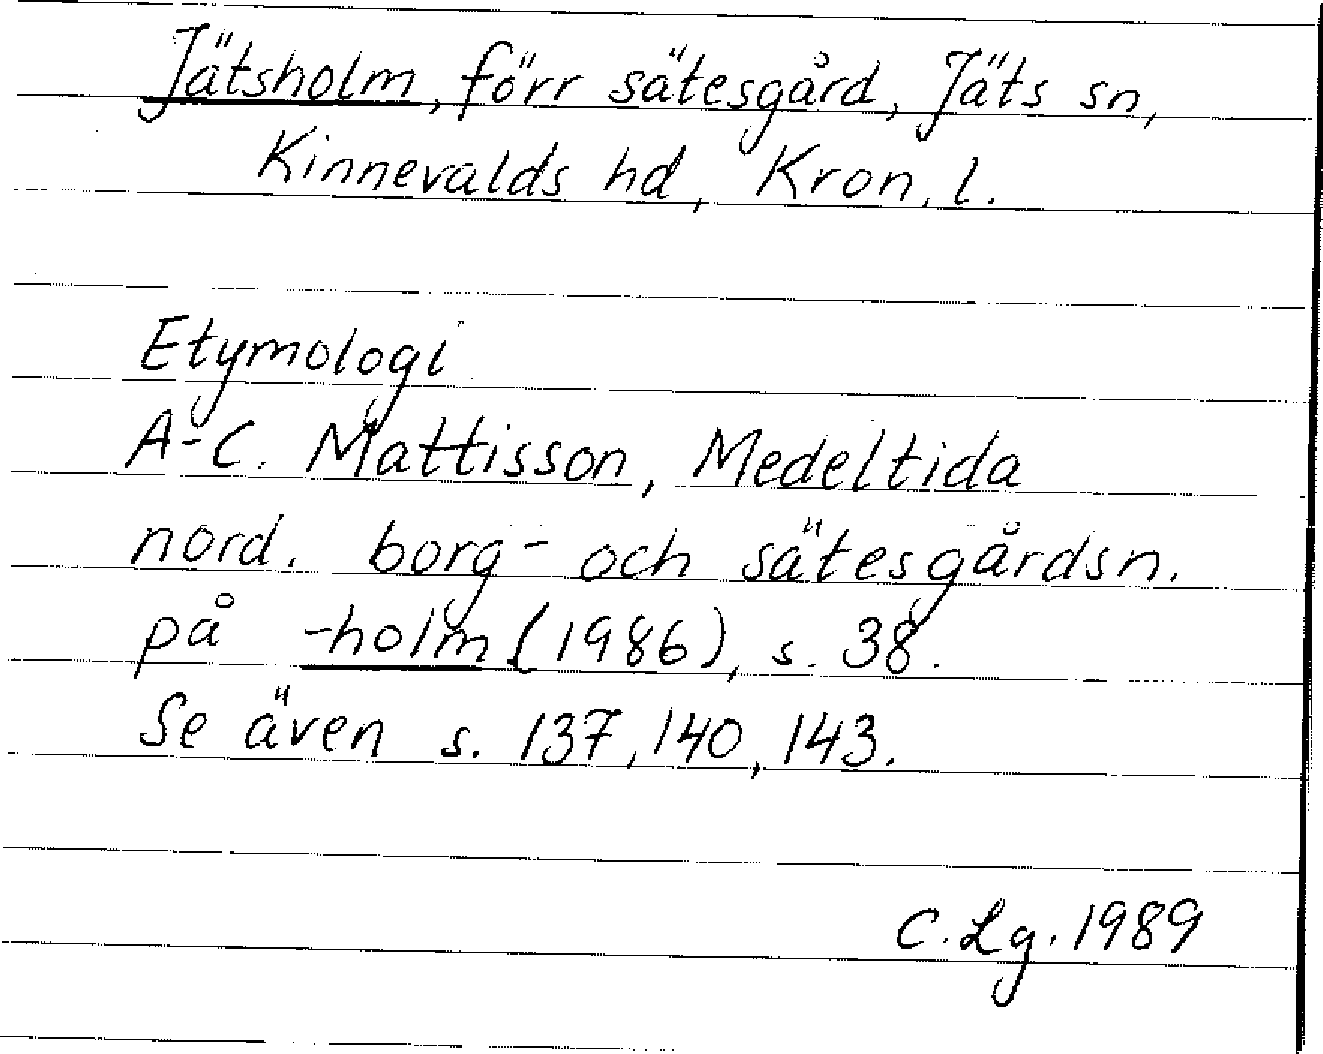 Jätsholm, förr sätesgård, Jäts sn,
Kinnevalds hd, Kron. l.
Etymologi
A-C. Mattisson, Medeltida
nord. borg- och sätesgårdsn.
på -holm (1986), s. 38.
Se även s. 137, 140, 143.
C. Lg. 1989